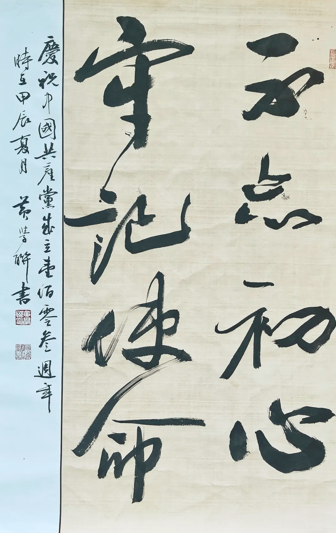 不忘初心
牢记使命
慶祝中國共產黨成立壹佰零叁週年
時在甲辰夏月 黄学联書